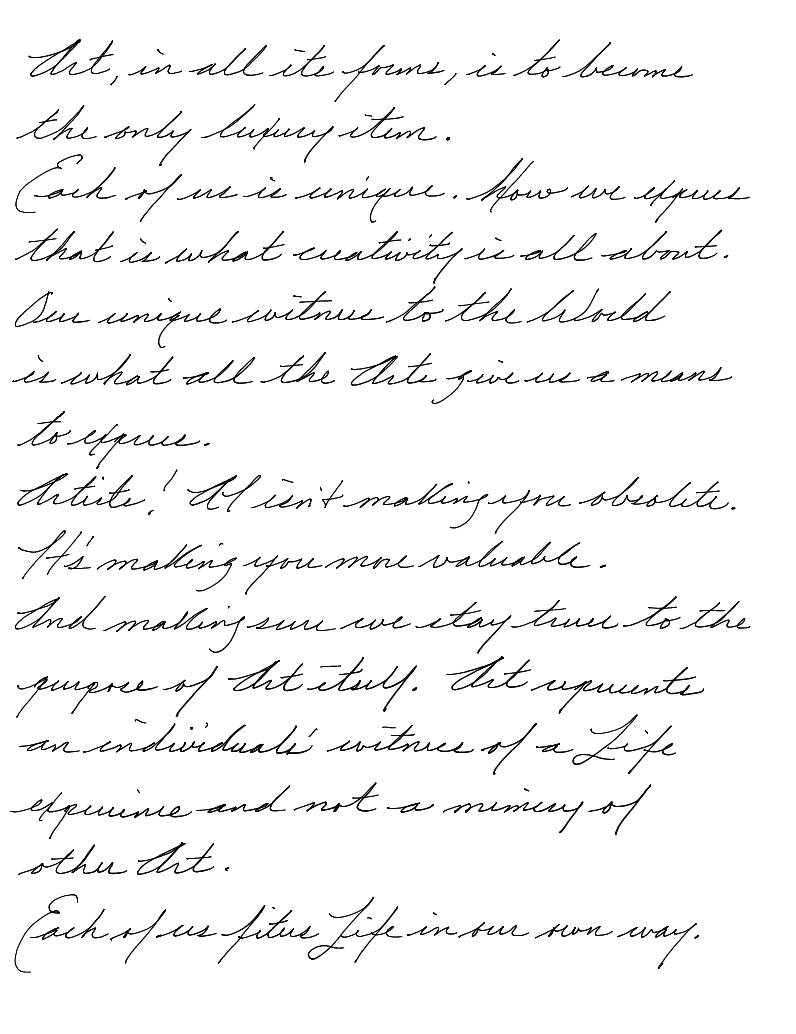 Art, in all its forms, is to become
the only luxury item.
Each of us is unique. How we express
that is what creativity is all about.
Our unique witness to the World
is what all the Arts give us a means
to express.
Artists! AI isn't making you obsolete.
It's making you more valuable.
And making sure we stay truer to the
purpose of Art itself. Art represents
an individuals' witness of a Life
experience and not a mimicry of
other Art.
Each of us Life in our own way.